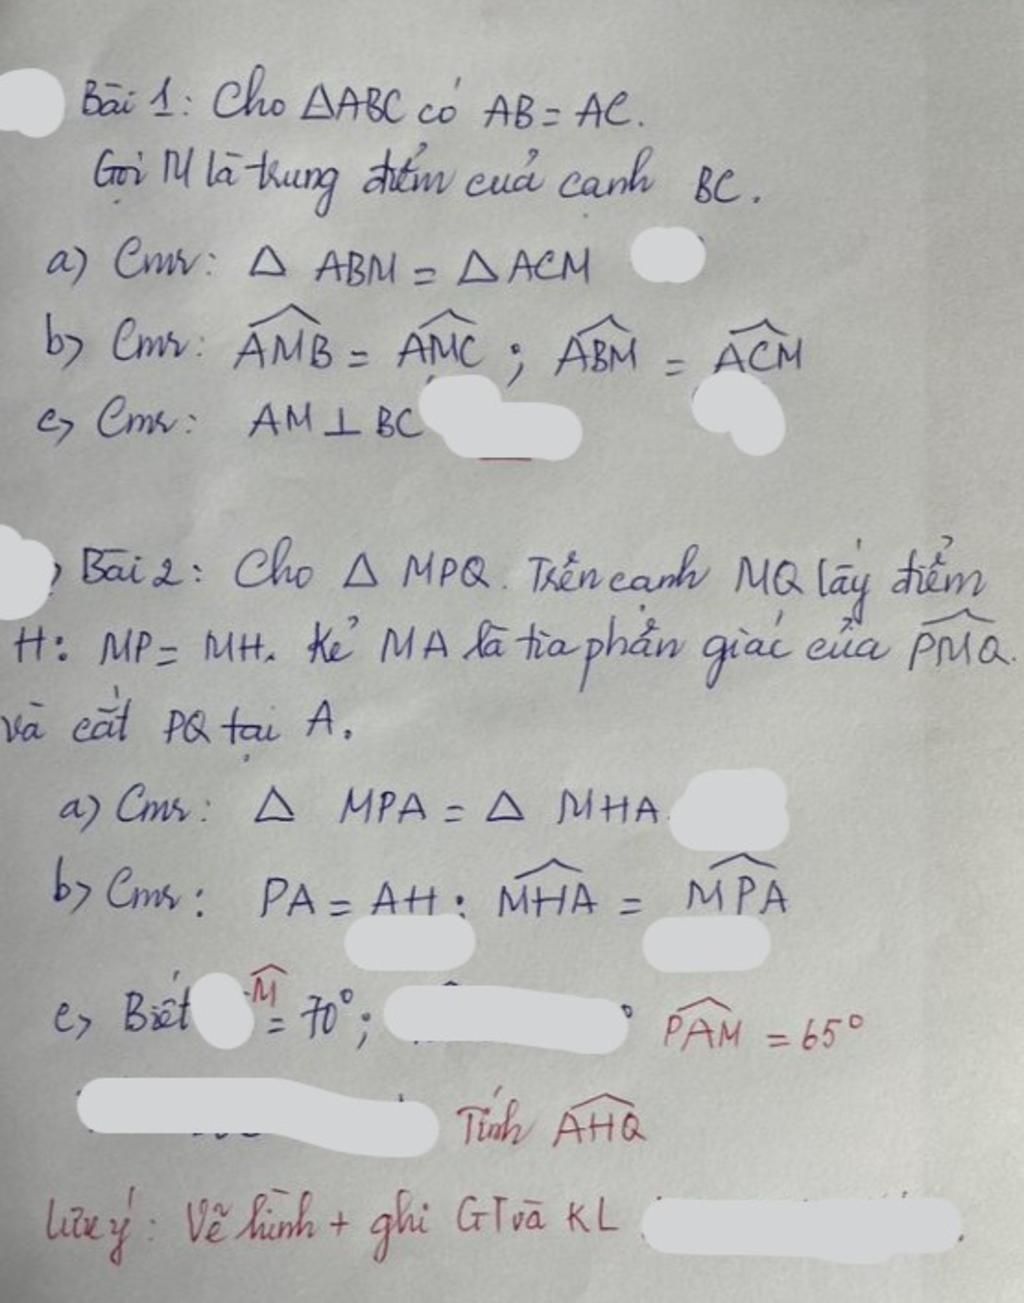 Bài 1: Cho △ABC có AB = AC.
Gọi M là trung điểm của cạnh BC.
a) Cmr: △ ABM = △ ACM
b) Cmr: \widehat{AMB} = \widehat{AMC} ; \widehat{ABM} = \widehat{ACM}
c) Cmr: AM ⊥ BC
Bài 2: Cho △ MPQ. Trên cạnh MQ lấy điểm
H: MP = MH. Kẻ MA là tia phân giác của \widehat{PMQ}.
và cắt PQ tại A.
a) Cmr: △ MPA = △ MHA
b) Cmr: PA = AH ; \widehat{MHA} = \widehat{MPA}
c) Biết \widehat{M} = 70° ; \widehat{PAM} = 65°
Tính \widehat{AHQ}
Lưu ý: Vẽ hình + ghi GT và KL